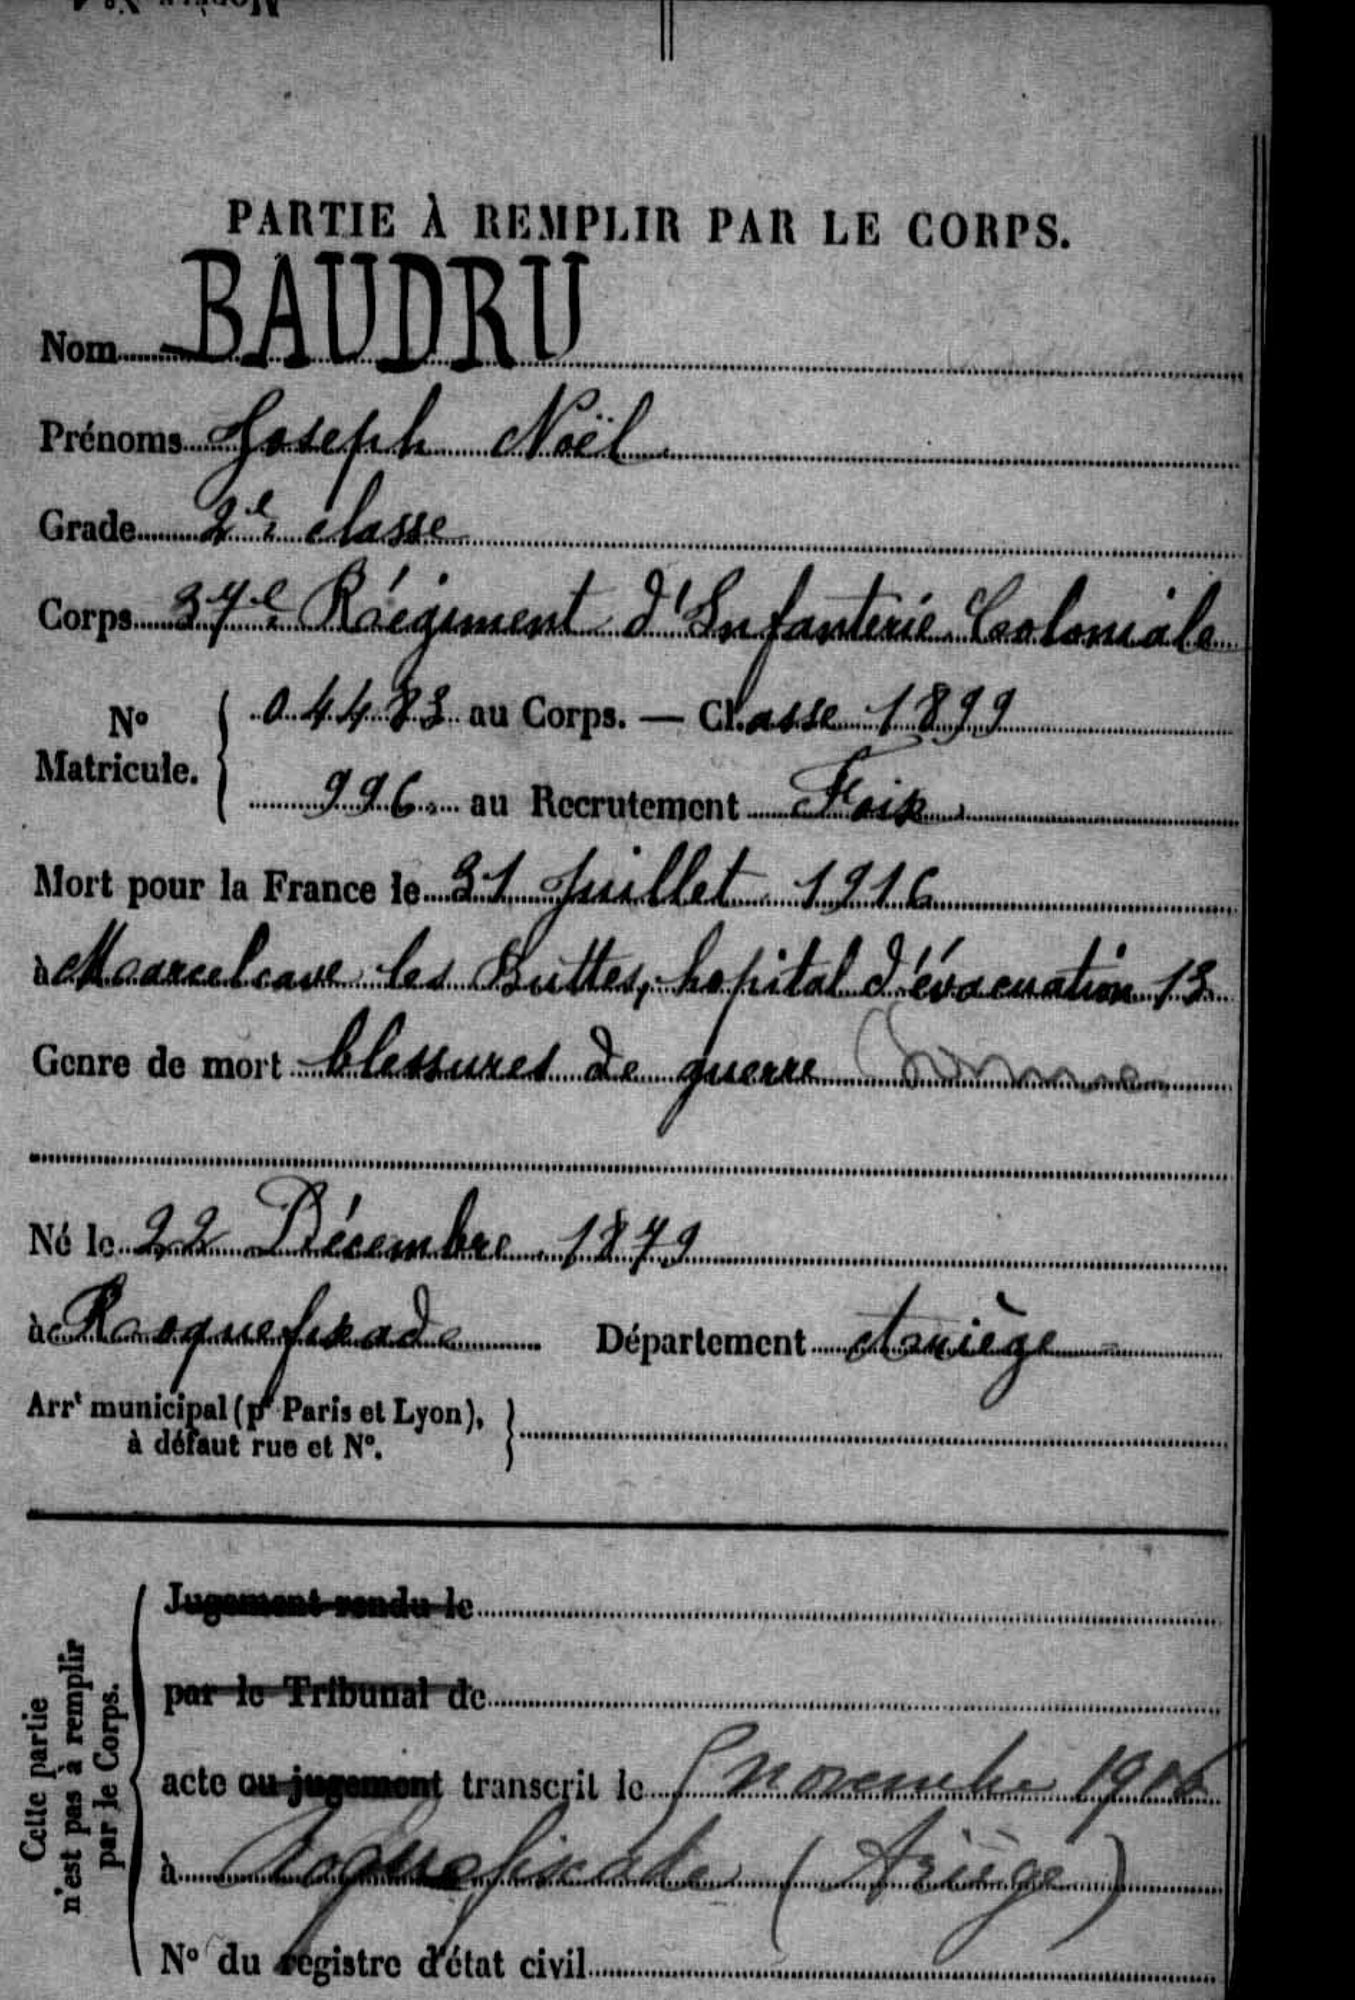 PARTIE À REMPLIR PAR LE CORPS.
Nom BAUDRU
Prénoms Joseph Noël
Grade 2e classe
Corps 37e Régiment d'Infanterie Coloniale
No Matricule. 04483 au Corps. — Classe 1899
996 au Recrutement Foix
Mort pour la France le 31 Juillet 1916
à Marcelcave les Buttes, hopital d'évacuation 13
Genre de mort blessures de guerre Somme
Né le 22 Décembre 1879
à Roquefixade Département Ariège
Arrt municipal (pr Paris et Lyon), à défaut rue et No.
Cette partie n'est pas à remplir par le Corps.
Jugement rendu le
par le Tribunal de
acte ou jugement transcrit le 5 novembre 1916
à Roquefixade (Ariège)
No du registre d'état civil